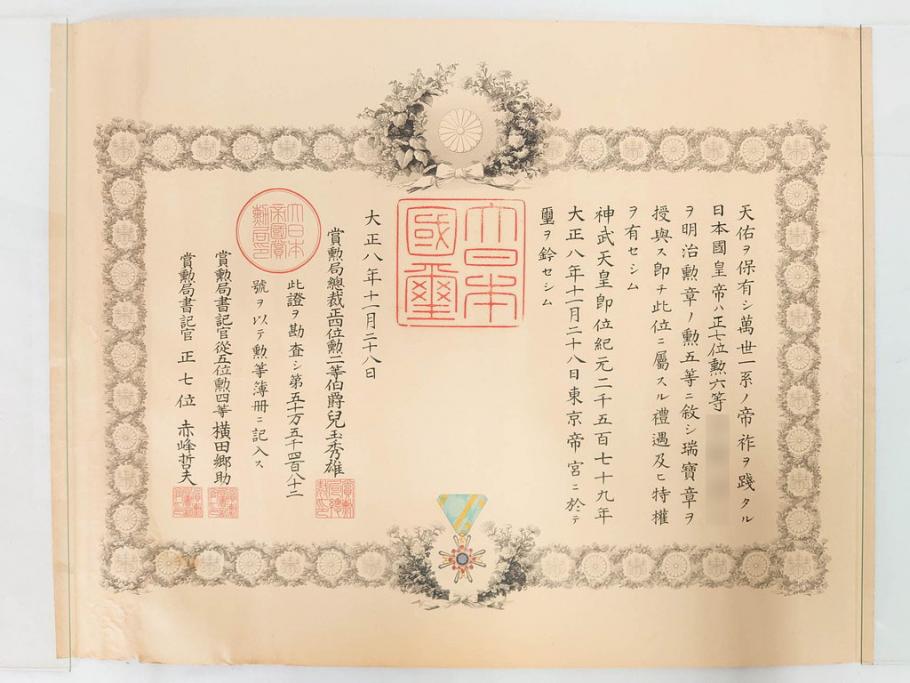 天佑ヲ保有シ萬世一系ノ帝祚ヲ踐タル
日本國皇帝ハ正七位勲六等
ヲ明治勲章ノ勲五等ニ敍シ瑞寶章ヲ
授與ス即チ此位ニ屬スル禮遇及ヒ特權
ヲ有セシム
神武天皇即位紀元二千五百七十九年
大正八年十一月二十八日東京帝宮ニ於テ
璽ヲ鈐セシム
大日本
國璽
大正八年十一月二十八日
賞勲局總裁正四位勲二等伯爵兒玉秀雄
此證ヲ勘査シ第五十万五千四百八十二
號ヲ以テ勲等簿册ニ記入ス
大日本
帝國賞
勲局印
賞勲局書記官從五位勲四等横田郷助
賞勲局書記官正七位赤峰哲夫